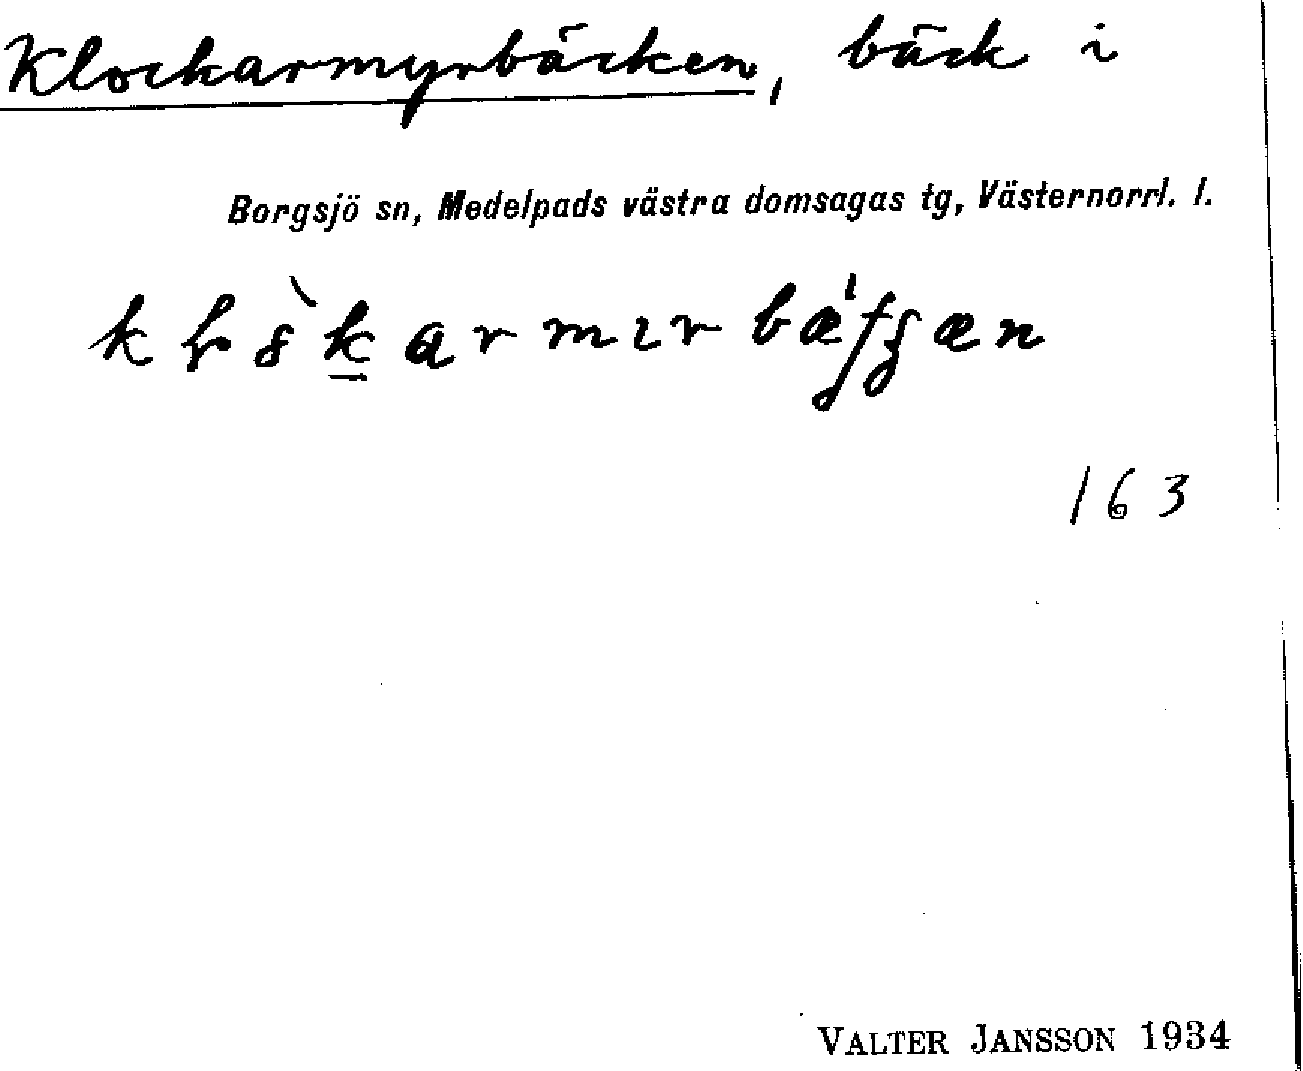 Klockarmyrbäcken, bäck i
Borgsjö sn, Medelpads västra domsagas tg, Västernorrl. l.
163
VALTER JANSSON 1934